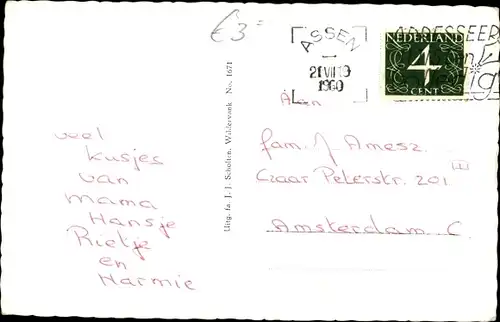 €3=
ASSEN
21 VII 19
1960
ADRESSEER
NEDERLAND
4
CENT
Aan
fam. J. Amesz.
Czaar Peterstr. 201
Amsterdam C.
Uitg. fa. J. J. Scholten, Wildervank No. 1671
veel
kusjes
van
mama
Hansje
Rietje
en
Harmie